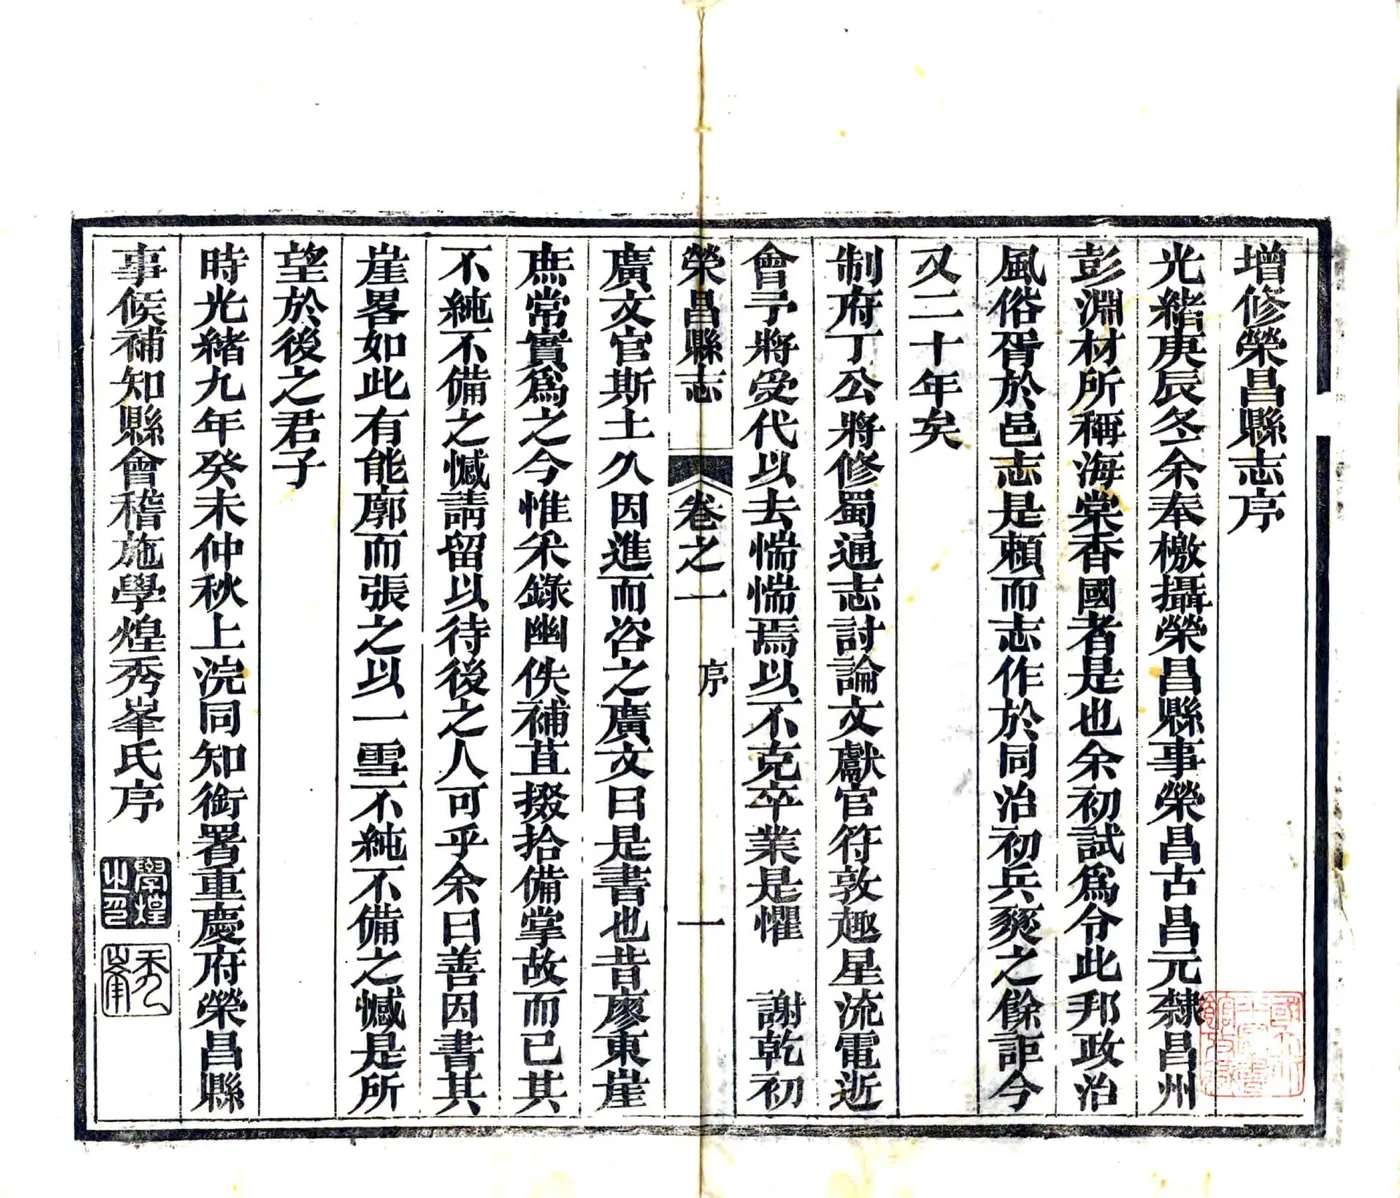 增修榮昌縣志序
光緒庚辰冬余奉檄攝榮昌縣事榮昌古昌元隸昌州
彭淵材所稱海棠香國者是也余初試爲令此邦政治
風俗胥於邑志是賴而志作於同治初兵燹之餘詎今
又二十年矣
制府丁公將修蜀通志討論文獻官符敦趣星流電逝
會予將受代以去惴惴焉以不克卒業是懼　謝乾初
榮昌縣志　卷之一　序　一
廣文官斯土久因進而咨之廣文曰是書也昔廖東崖
庶常實爲之今惟采錄幽佚補苴掇拾備掌故而已其
不純不備之憾請留以待後之人可乎余曰善因書其
崖畧如此有能廓而張之以一雪不純不備之憾是所
望於後之君子
時光緒九年癸未仲秋上浣同知銜署重慶府榮昌縣
事候補知縣會稽施學煌秀峯氏序
學煌之印
秀峯